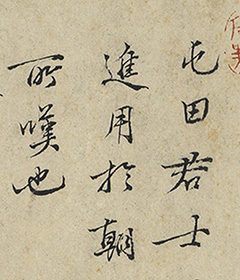 屯田君士
進用於朝
所嘆也